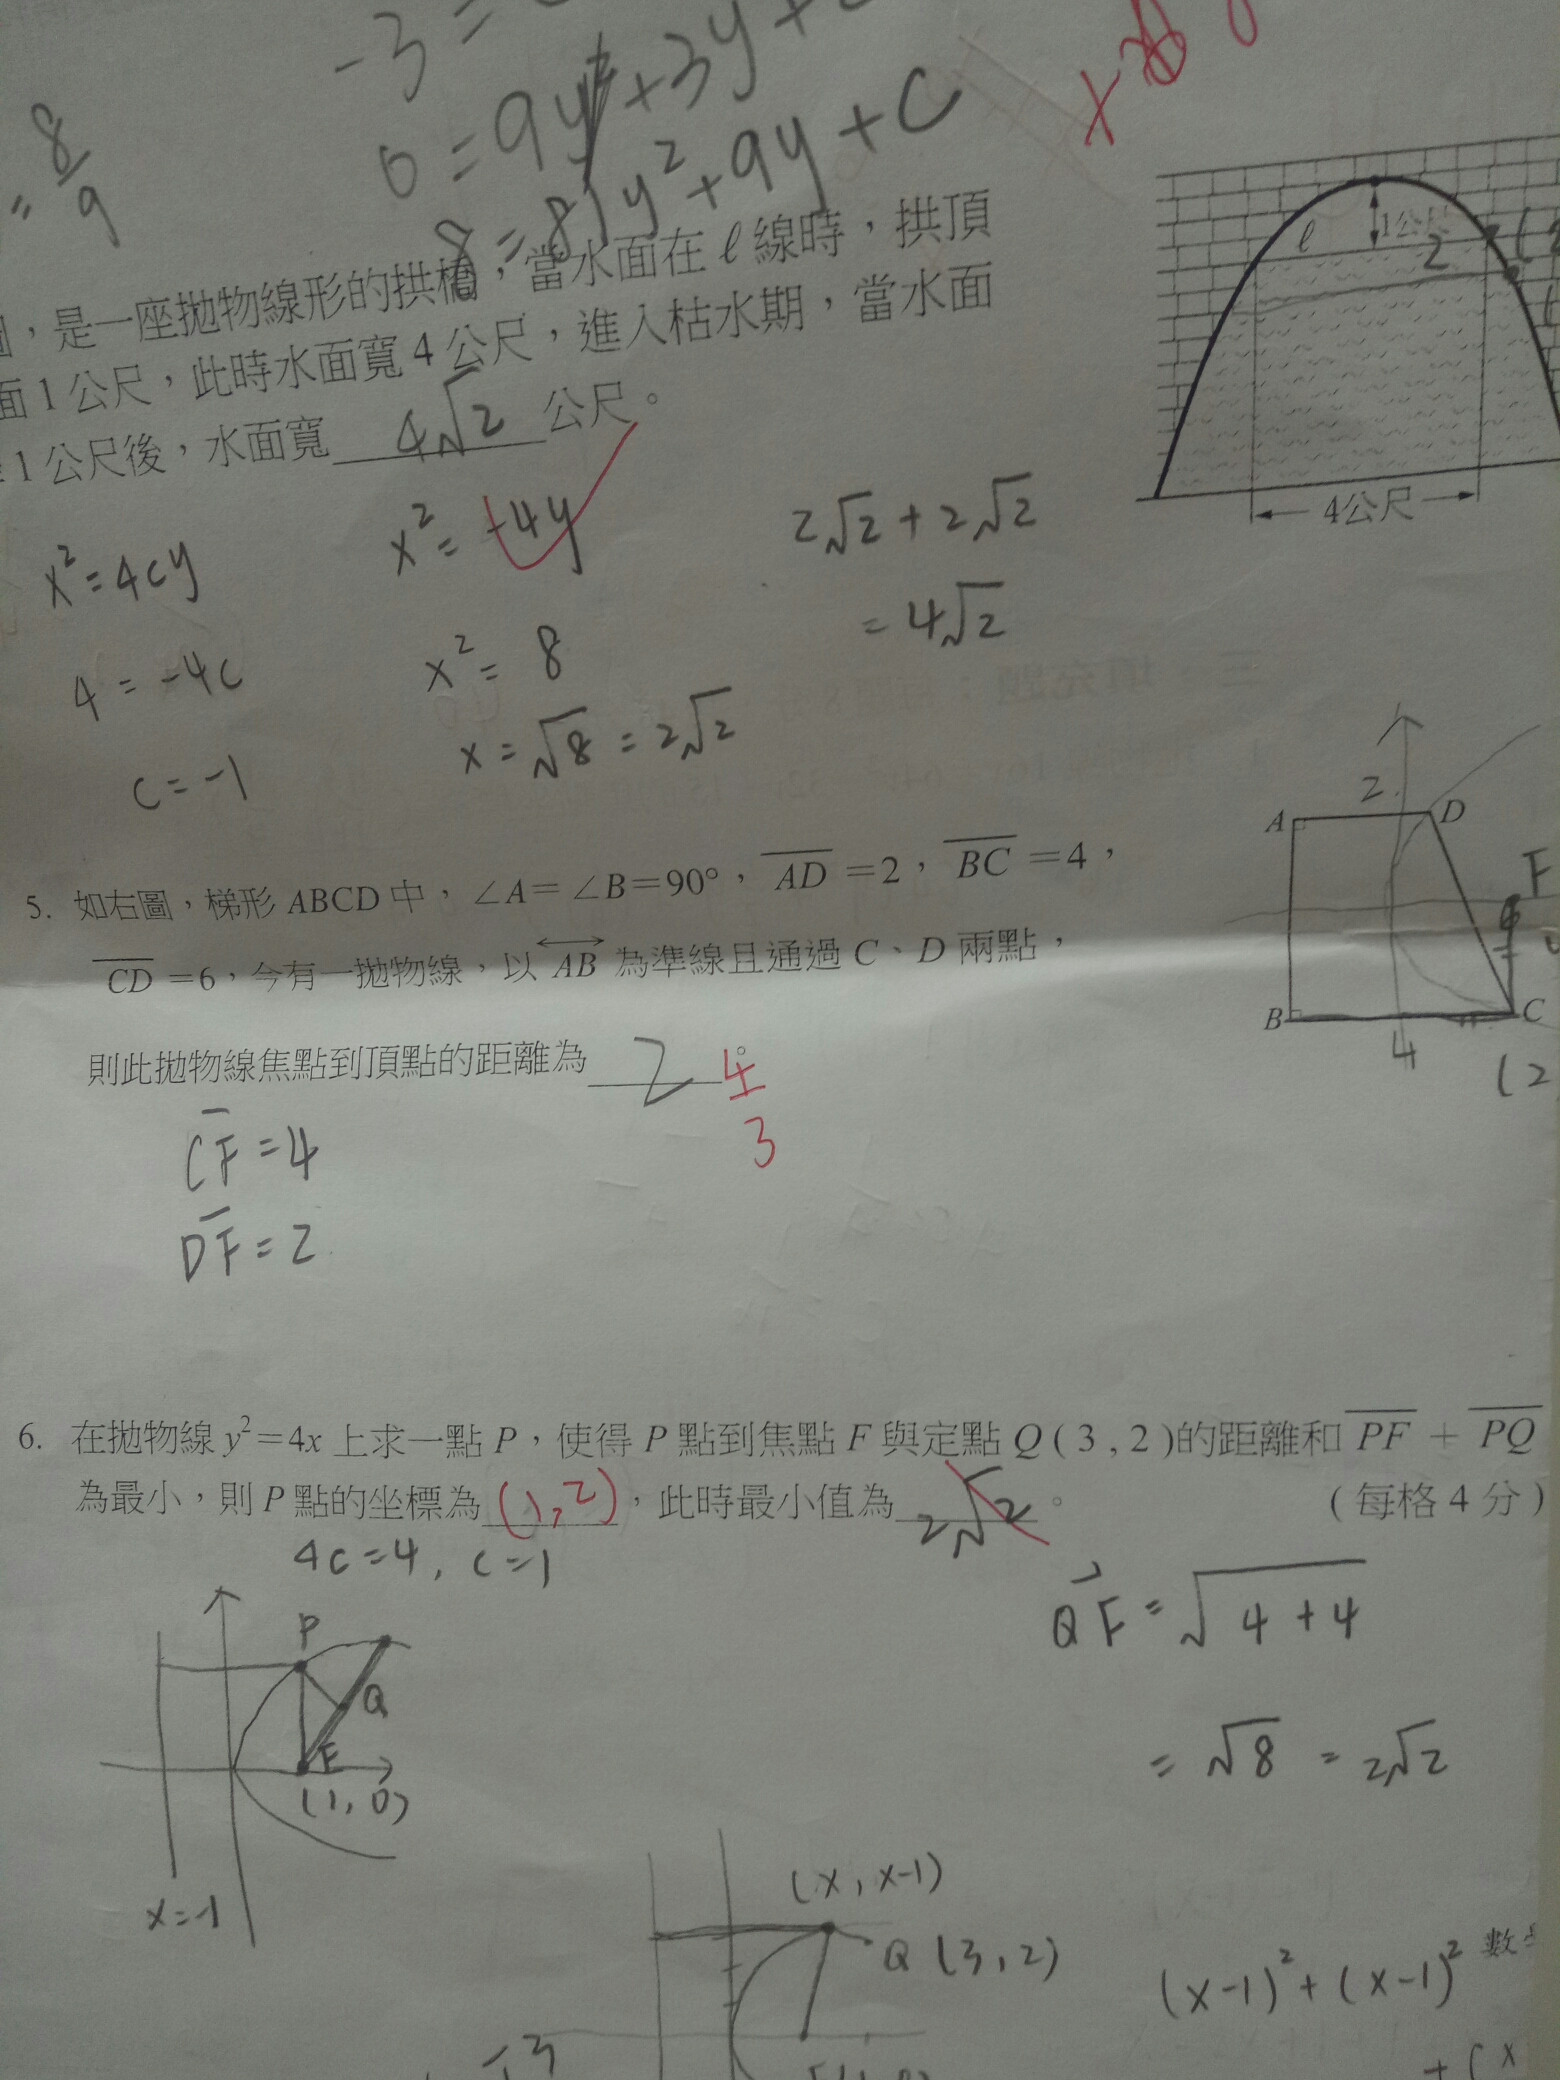 -3 =
0 = 9y + 3y +
8 = 81y² + 9y + C
= 8/9
圖，是一座拋物線形的拱橋，當水面在 ℓ 線時，拱頂
面 1 公尺，此時水面寬 4 公尺，進入枯水期，當水面
1 公尺後，水面寬 4√2 公尺。
1公尺
ℓ
2
4公尺
x² = 4cy
x² = -4y
2√2 + 2√2
= 4√2
4 = -4c
x² = 8
c = -1
x = √8 = 2√2
5. 如右圖，梯形 ABCD 中，∠A=∠B=90°，AD=2，BC=4，
CD=6，今有一拋物線，以 AB 為準線且通過 C、D 兩點，
則此拋物線焦點到頂點的距離為 2 。
4/3
A
2
D
F
B
C
4
(2
CF = 4
DF = 2
6. 在拋物線 y²=4x 上求一點 P，使得 P 點到焦點 F 與定點 Q(3,2)的距離和 PF + PQ
為最小，則 P 點的坐標為 (1,2)，此時最小值為 2√2 。 (每格 4 分)
4c=4, c=1
QF = √4+4
= √8 = 2√2
P
Q
F
(1,0)
x=-1
(x, x-1)
Q (3,2)
(x-1)² + (x-1)²
數